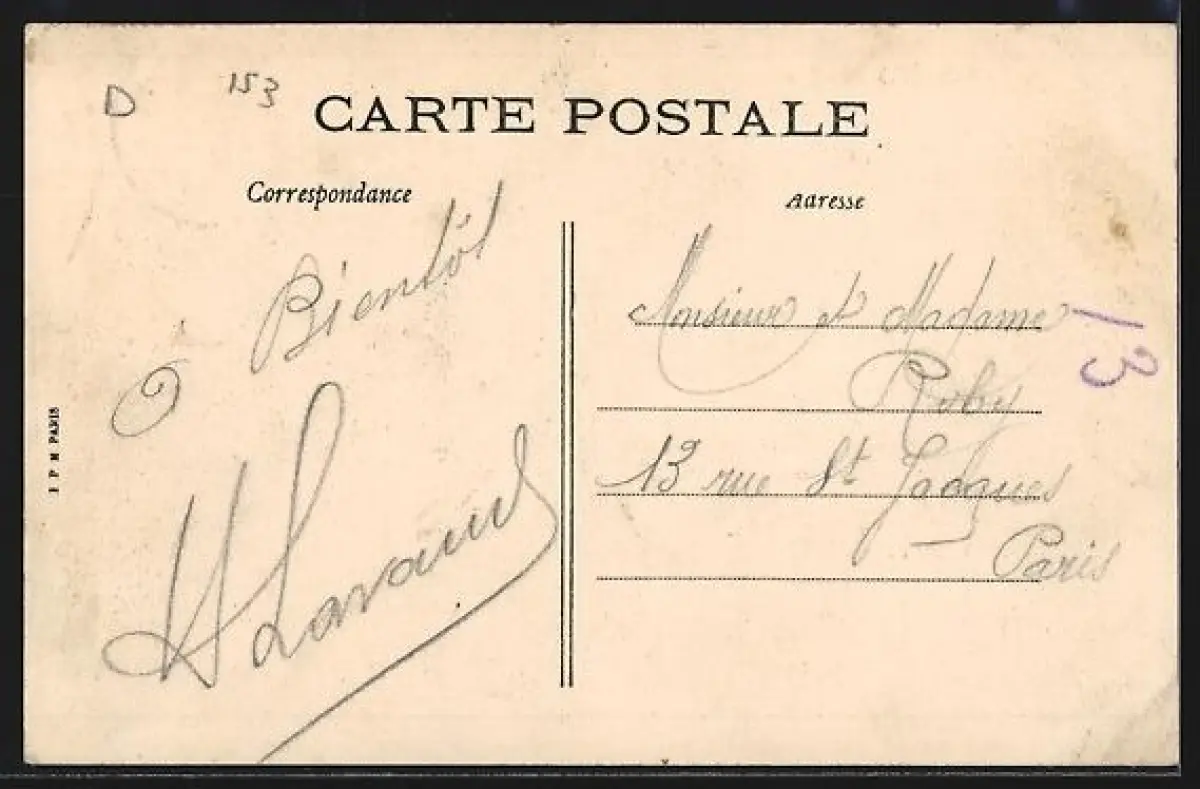 D 153
CARTE POSTALE
Correspondance
à Bientôt
H
Adresse
Monsieur et Madame
Roby
13 rue St Jacques
Paris
13
I P M PARIS